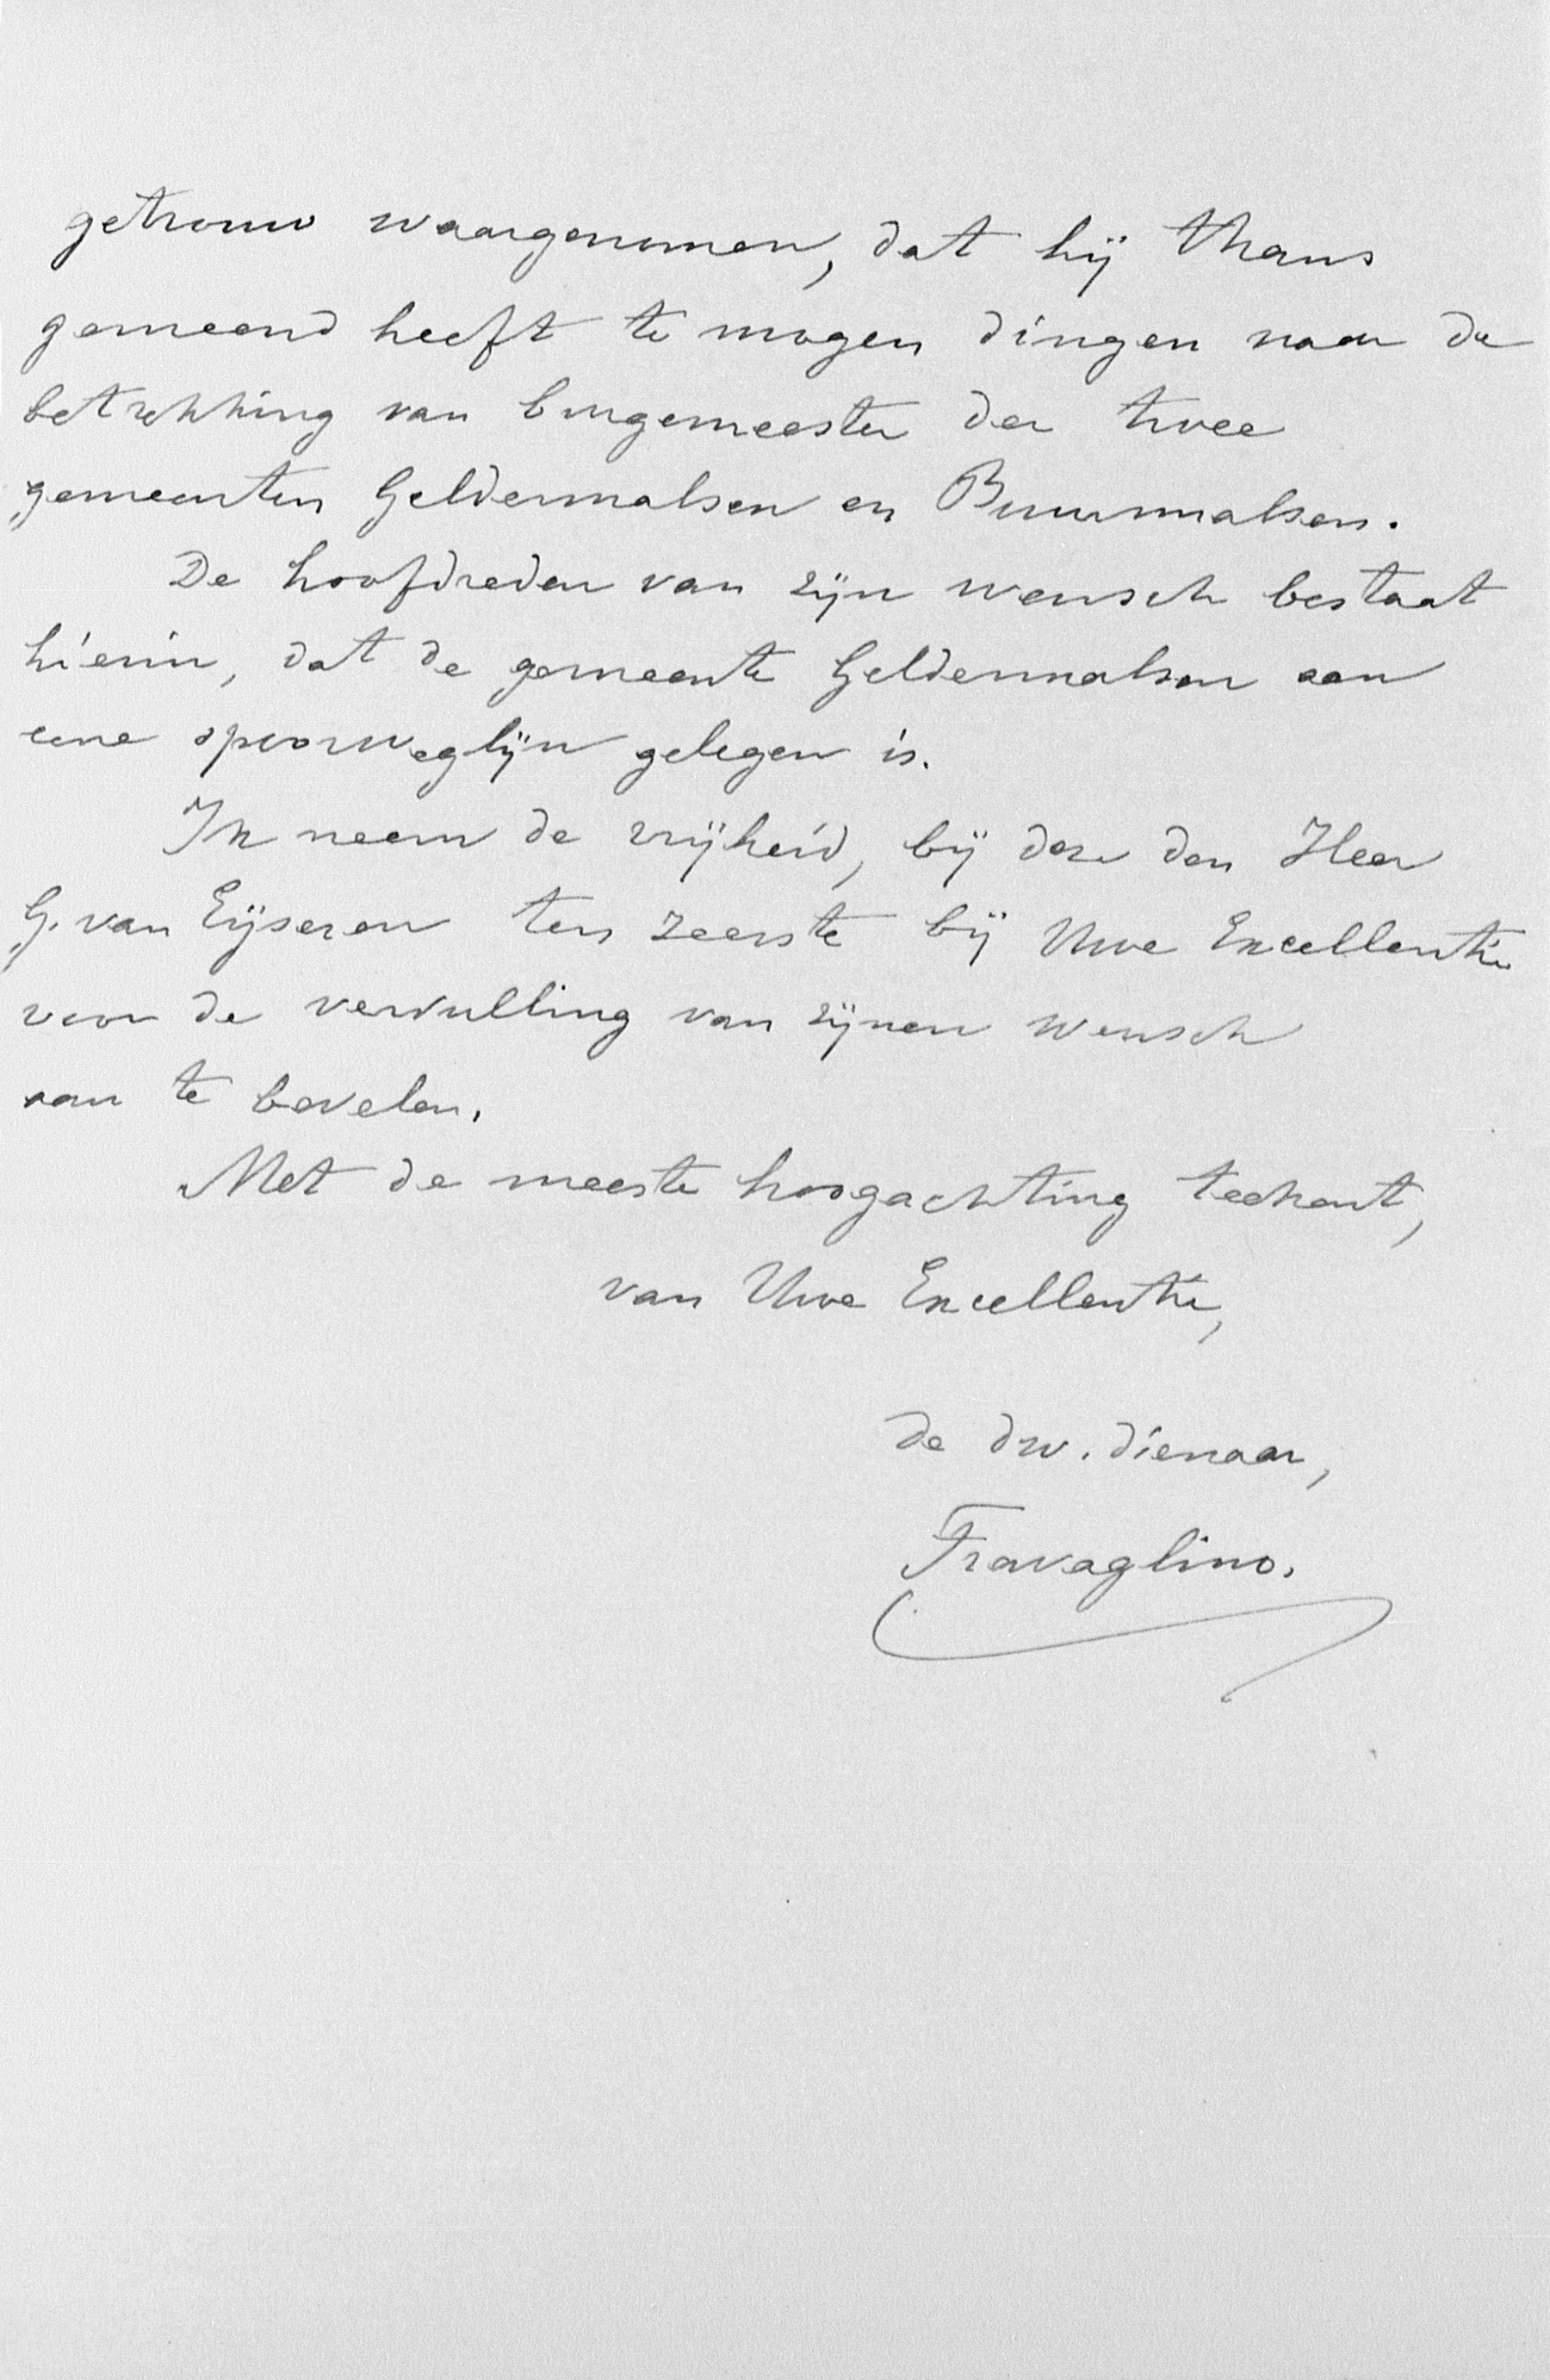 getrouw waargenomen, dat hij thans
gemeend heeft te mogen dingen naar de
betrekking van burgemeester der twee
gemeenten Geldermalsen en Buurmalsen.
De hoofdreden van zijn wensch bestaat
hierin, dat de gemeente Geldermalsen aan
eene spoorweglijn gelegen is.
Ik neem de vrijheid, bij deze den Heer
G. van Eijseren ten zeerste bij Uwe Excellentie
voor de vervulling van zijnen wensch
aan te bevelen.
Met de meeste hoogachting teekent,
van Uwe Excellentie,
de dw. dienaar,
Travaglino.